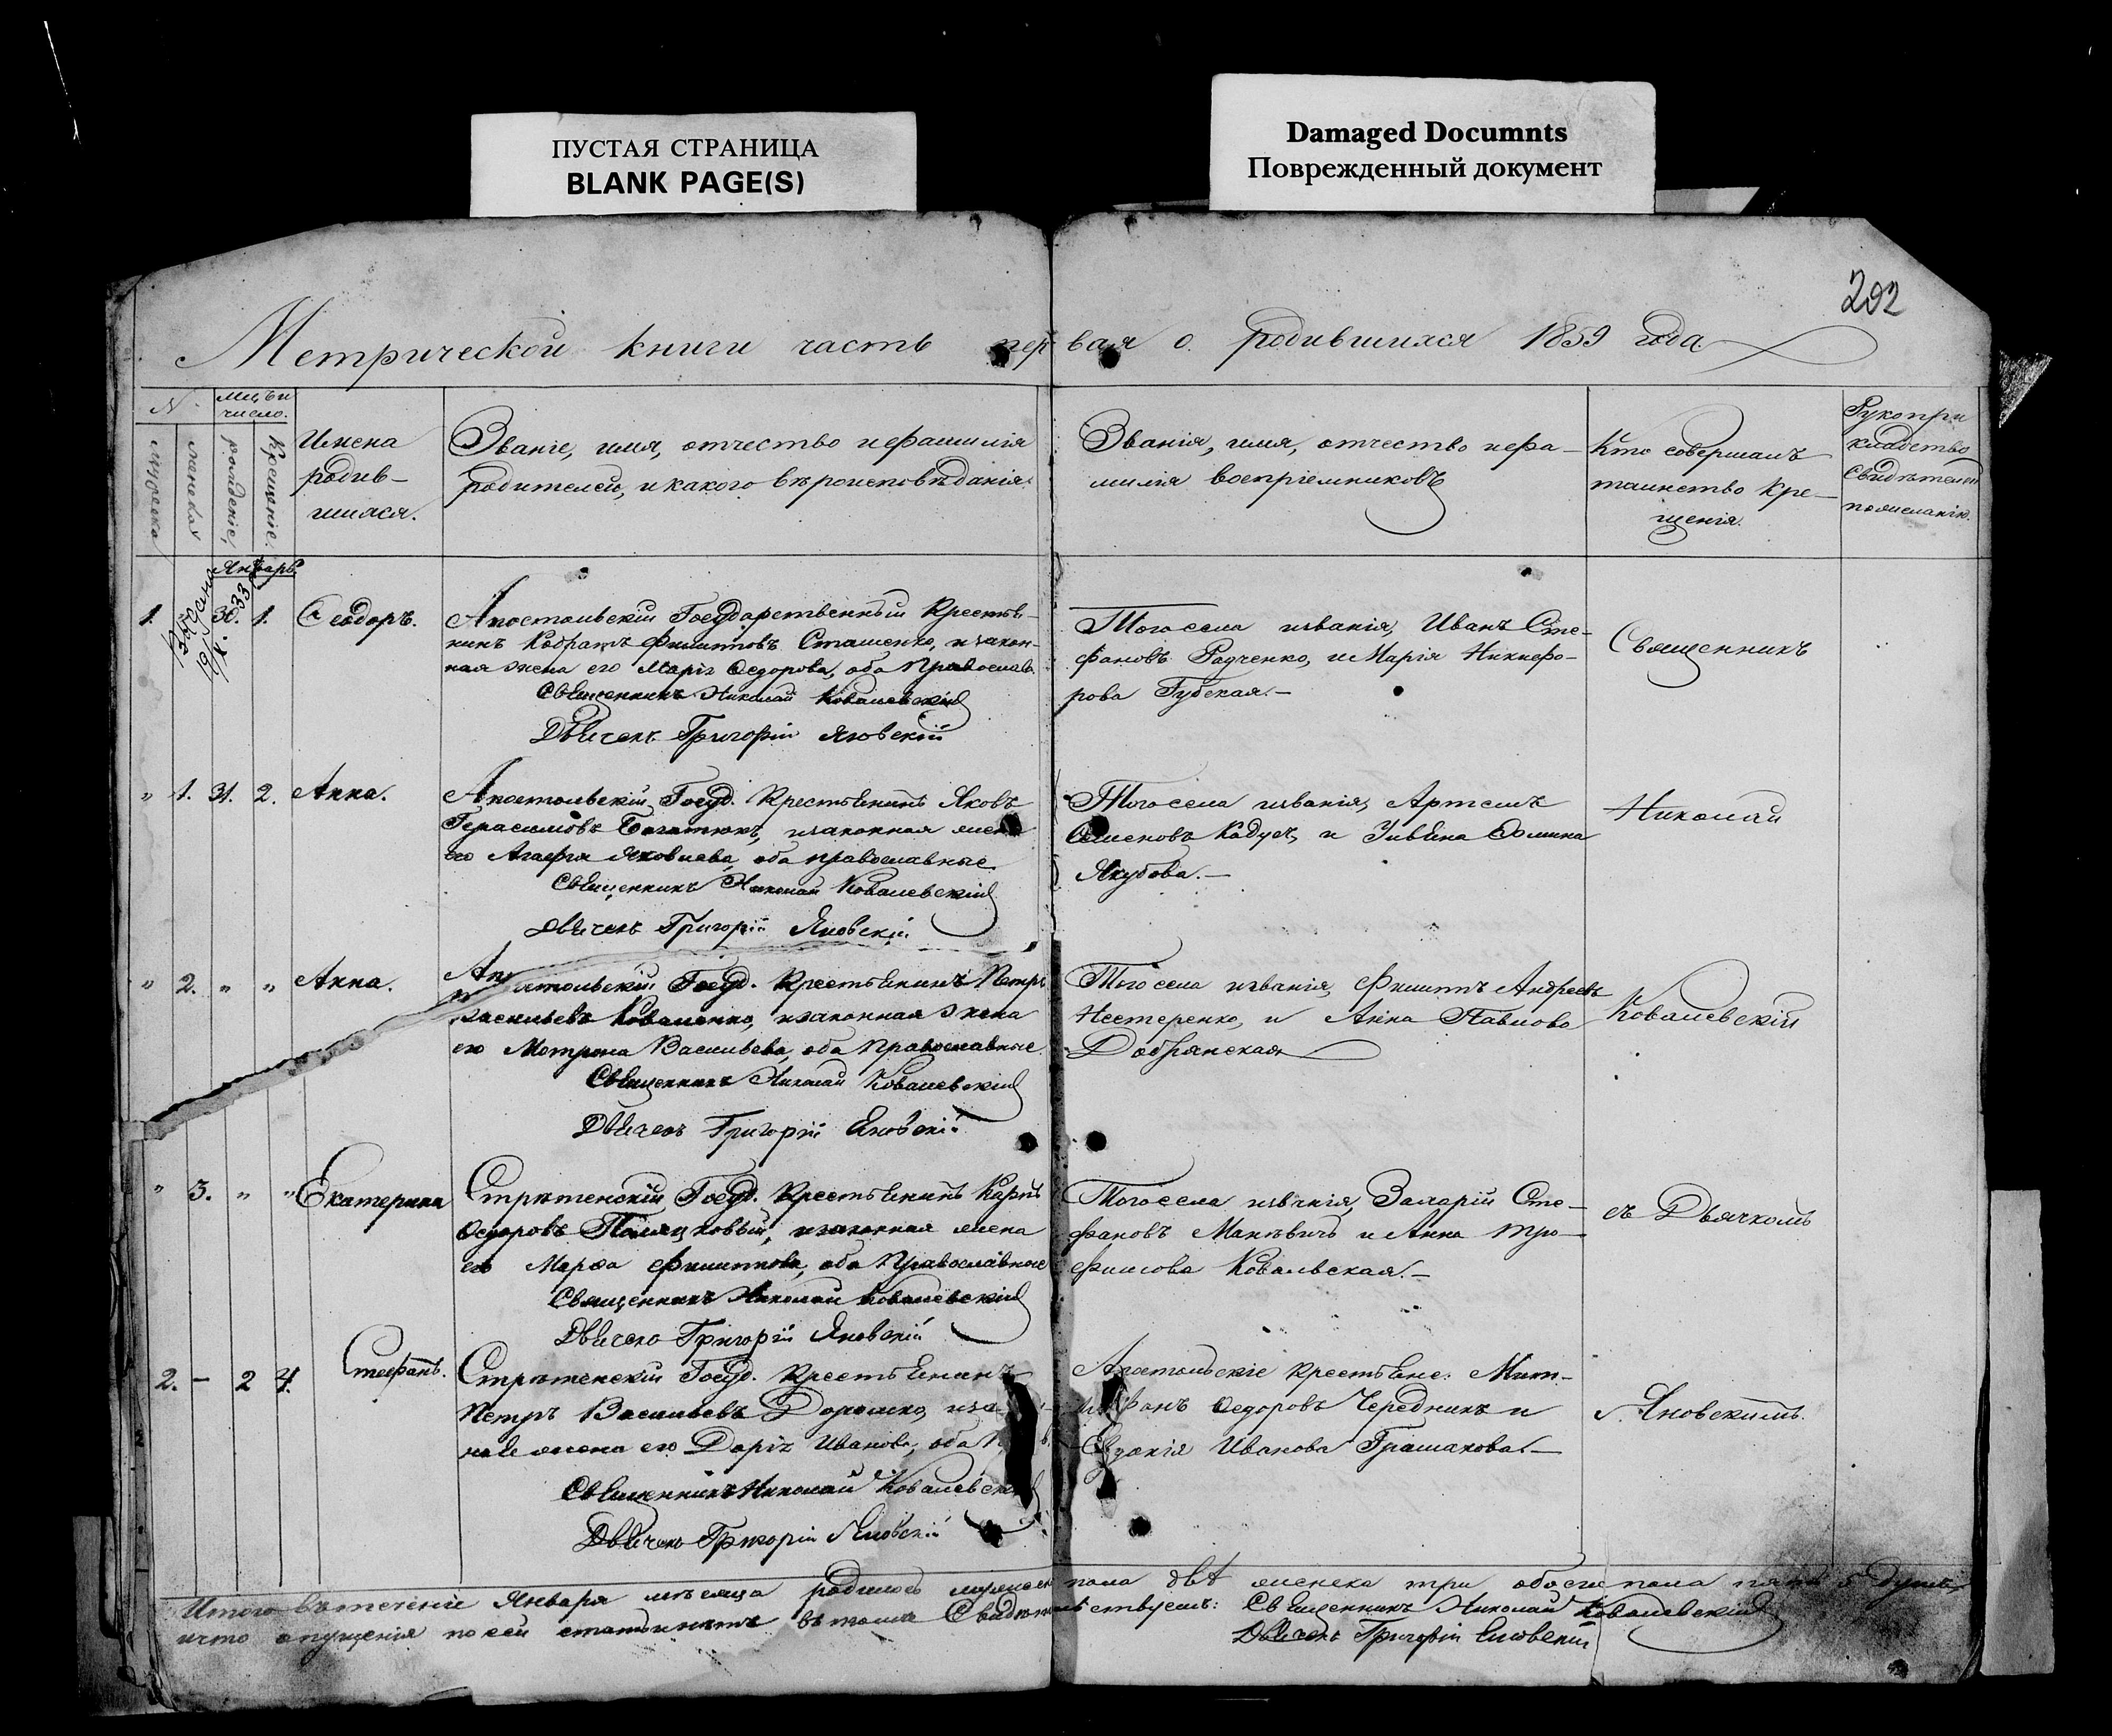 ПУСТАЯ СТРАНИЦА
BLANK PAGE(S)
Damaged Documnts
Поврежденный документ
202
Метрической книги часть первая о родившихся 1859 года
№
мцъ и число.
мужеска
женска
рожденіе,
крещеніе.
Имена
родив-
шихся.
Званіе, имя, отчество и фамилія
родителей, и какого вѣроисповѣданія.
Званія, имя, отчество и фа-
милія воспріемниковъ
Кто совершалъ
таинство кре-
щенія.
Рукопри
кладство
свидѣтелей
по желанію.
Январь
1. 30. 1. Ѳеодоръ.
Апостольскій Государственный Крестья-
нинъ Кодратъ Филиповъ Сташенко, и закон-
ная жена его Марія Ѳедорова, оба Православ.
Священникъ Николай Ковалевскій
Дьячекъ Григорій Яновскій
Того села и званія, Иванъ Сте-
фановъ Радченко, и Марія Никифо-
рова Губская.-
Священникъ
" 1. 31. 2. Анна.
Апостольскій Госуд. Крестьянинъ Яковъ
Герасимовъ Богатюкъ, и законная жена
его Агафія Яковлева, оба православные.
Священникъ Николай Ковалевскій
Дьячекъ Григорій Яновскій
Того села и званія, Артемъ
Семеновъ Кадус, и Домина
Якубова.-
Николай
" 2. " " Анна.
Апостольскій Госуд. Крестьянинъ Петръ
Васильевъ Коваленко, и законная жена
его Мотрона Васильева, оба Православные.
Священникъ Николай Ковалевскій
Дьячекъ Григорій Яновскій
Того села и званія, Филиппъ Андреевъ
Нестеренко, и Анна Павлова
Добрянская
Ковалевскій
" 3. " " Екатерина
Стрѣтенскій Госуд. Крестьянинъ Карпъ
Ѳедоровъ и законная жена
его Марѳа Филиппова, оба Православные
Священникъ Николай Ковалевскій
Дьячекъ Григорій Яновскій
Того села и званія, Захарій Сте-
фановъ Манѣвичъ и Анна Тро-
фимова Ковальская.-
съ Дьячкомъ
2. - 2 4. Стефанъ.
Стрѣтенскій Госуд. Крестьянинъ
Петръ Васильевъ Дорошко, и за
ная жена его Дарія Иванова, оба
Священникъ Николай Ковалевскій
Дьячекъ Григорій Яновскій
Апостольскіе крестьяне: Мит-
рофанъ Ѳедоровъ Чередникъ и
Евдокія Иванова Грашакова.-
Яновскимъ.
Итого въ теченіе Января мѣсяца родилось мужеска пола двѣ женска три, обоего пола пять 5 душъ
и что опущенія по сей статьи нѣтъ въ томъ Свидѣтельствуемъ: Священникъ Николай Ковалевскій
Дьячекъ Григорій Яновскій